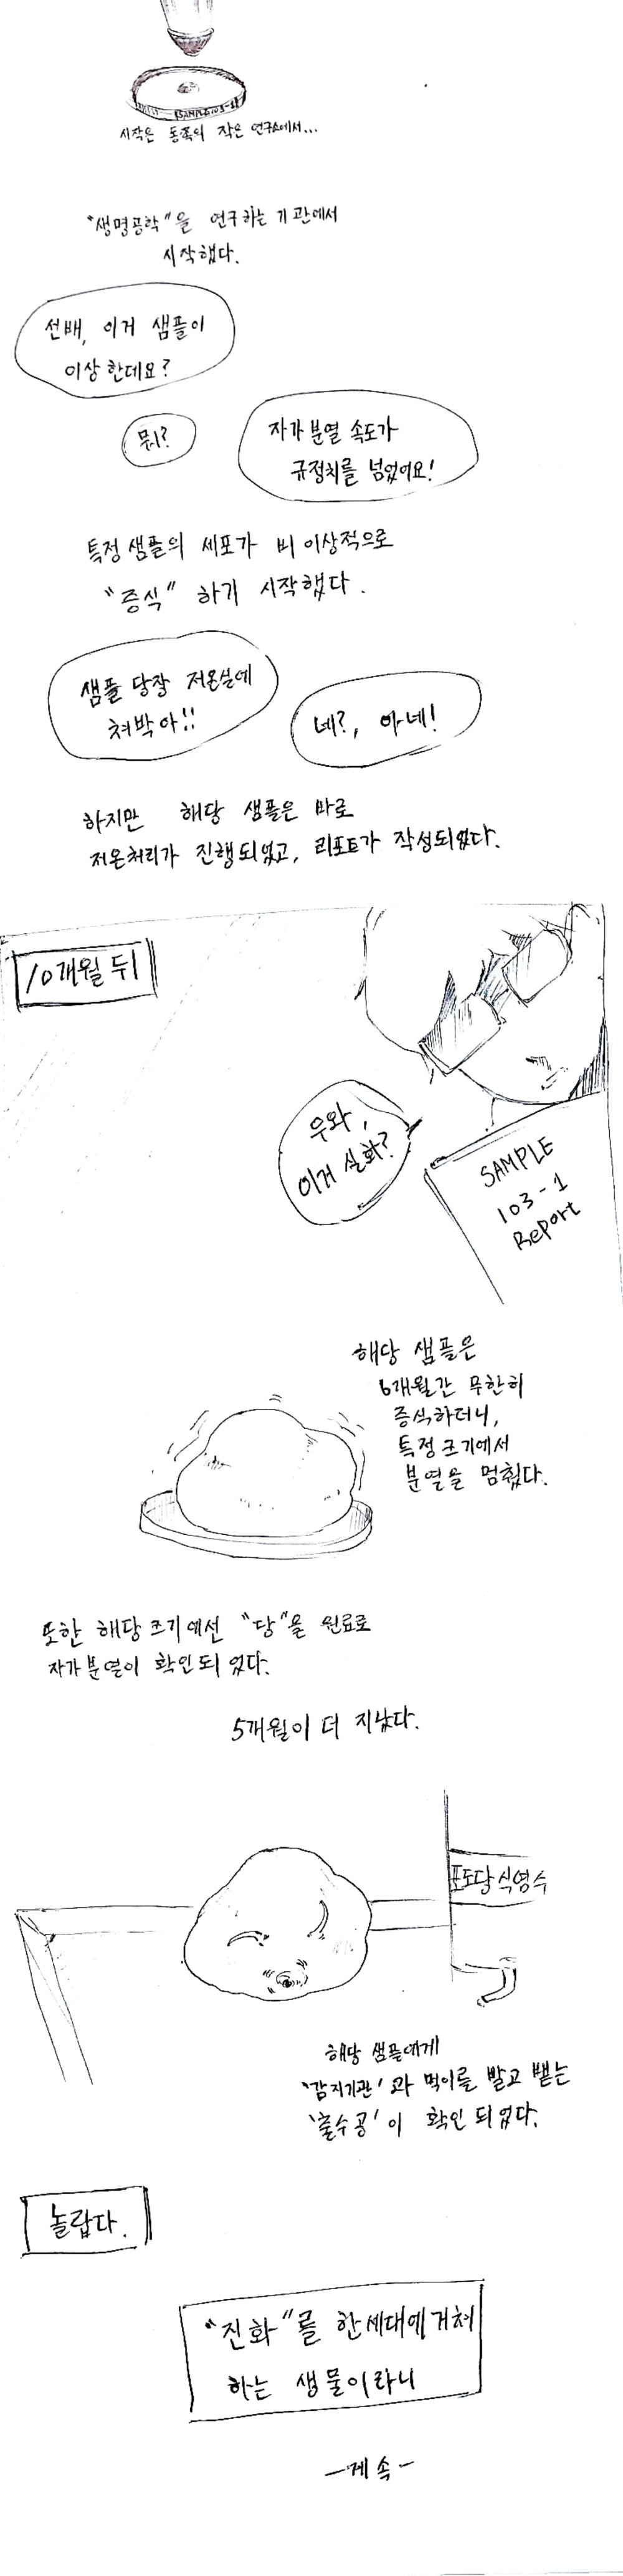 SAMPLE103-1
시작은 동쪽의 작은 연구소에서...
"생명공학"을 연구하는 기관에서
시작했다.
선배, 이거 샘플이
이상한데요?
뭐?
자가분열 속도가
규정치를 넘었어요!
특정 샘플의 세포가 비이상적으로
"증식" 하기 시작했다.
샘플 당장 저온실에
쳐박아!!
네?, 아네!
하지만 해당 샘플은 바로
저온처리가 진행되었고, 리포트가 작성되었다.
10개월 뒤
우와,
이거 실화?
SAMPLE
103-1
Report
해당 샘플은
6개월간 무한히
증식하더니,
특정 크기에서
분열을 멈췄다.
또한 해당 크기에선 "당"을 원료로
자가분열이 확인되었다.
5개월이 더 지났다.
포도당 식염수
해당 샘플에게
'감지기관'과 먹이를 빨고 뱉는
'출수공'이 확인되었다.
놀랍다.
"진화"를 한세대에 거쳐
하는 생물이라니
-계속-